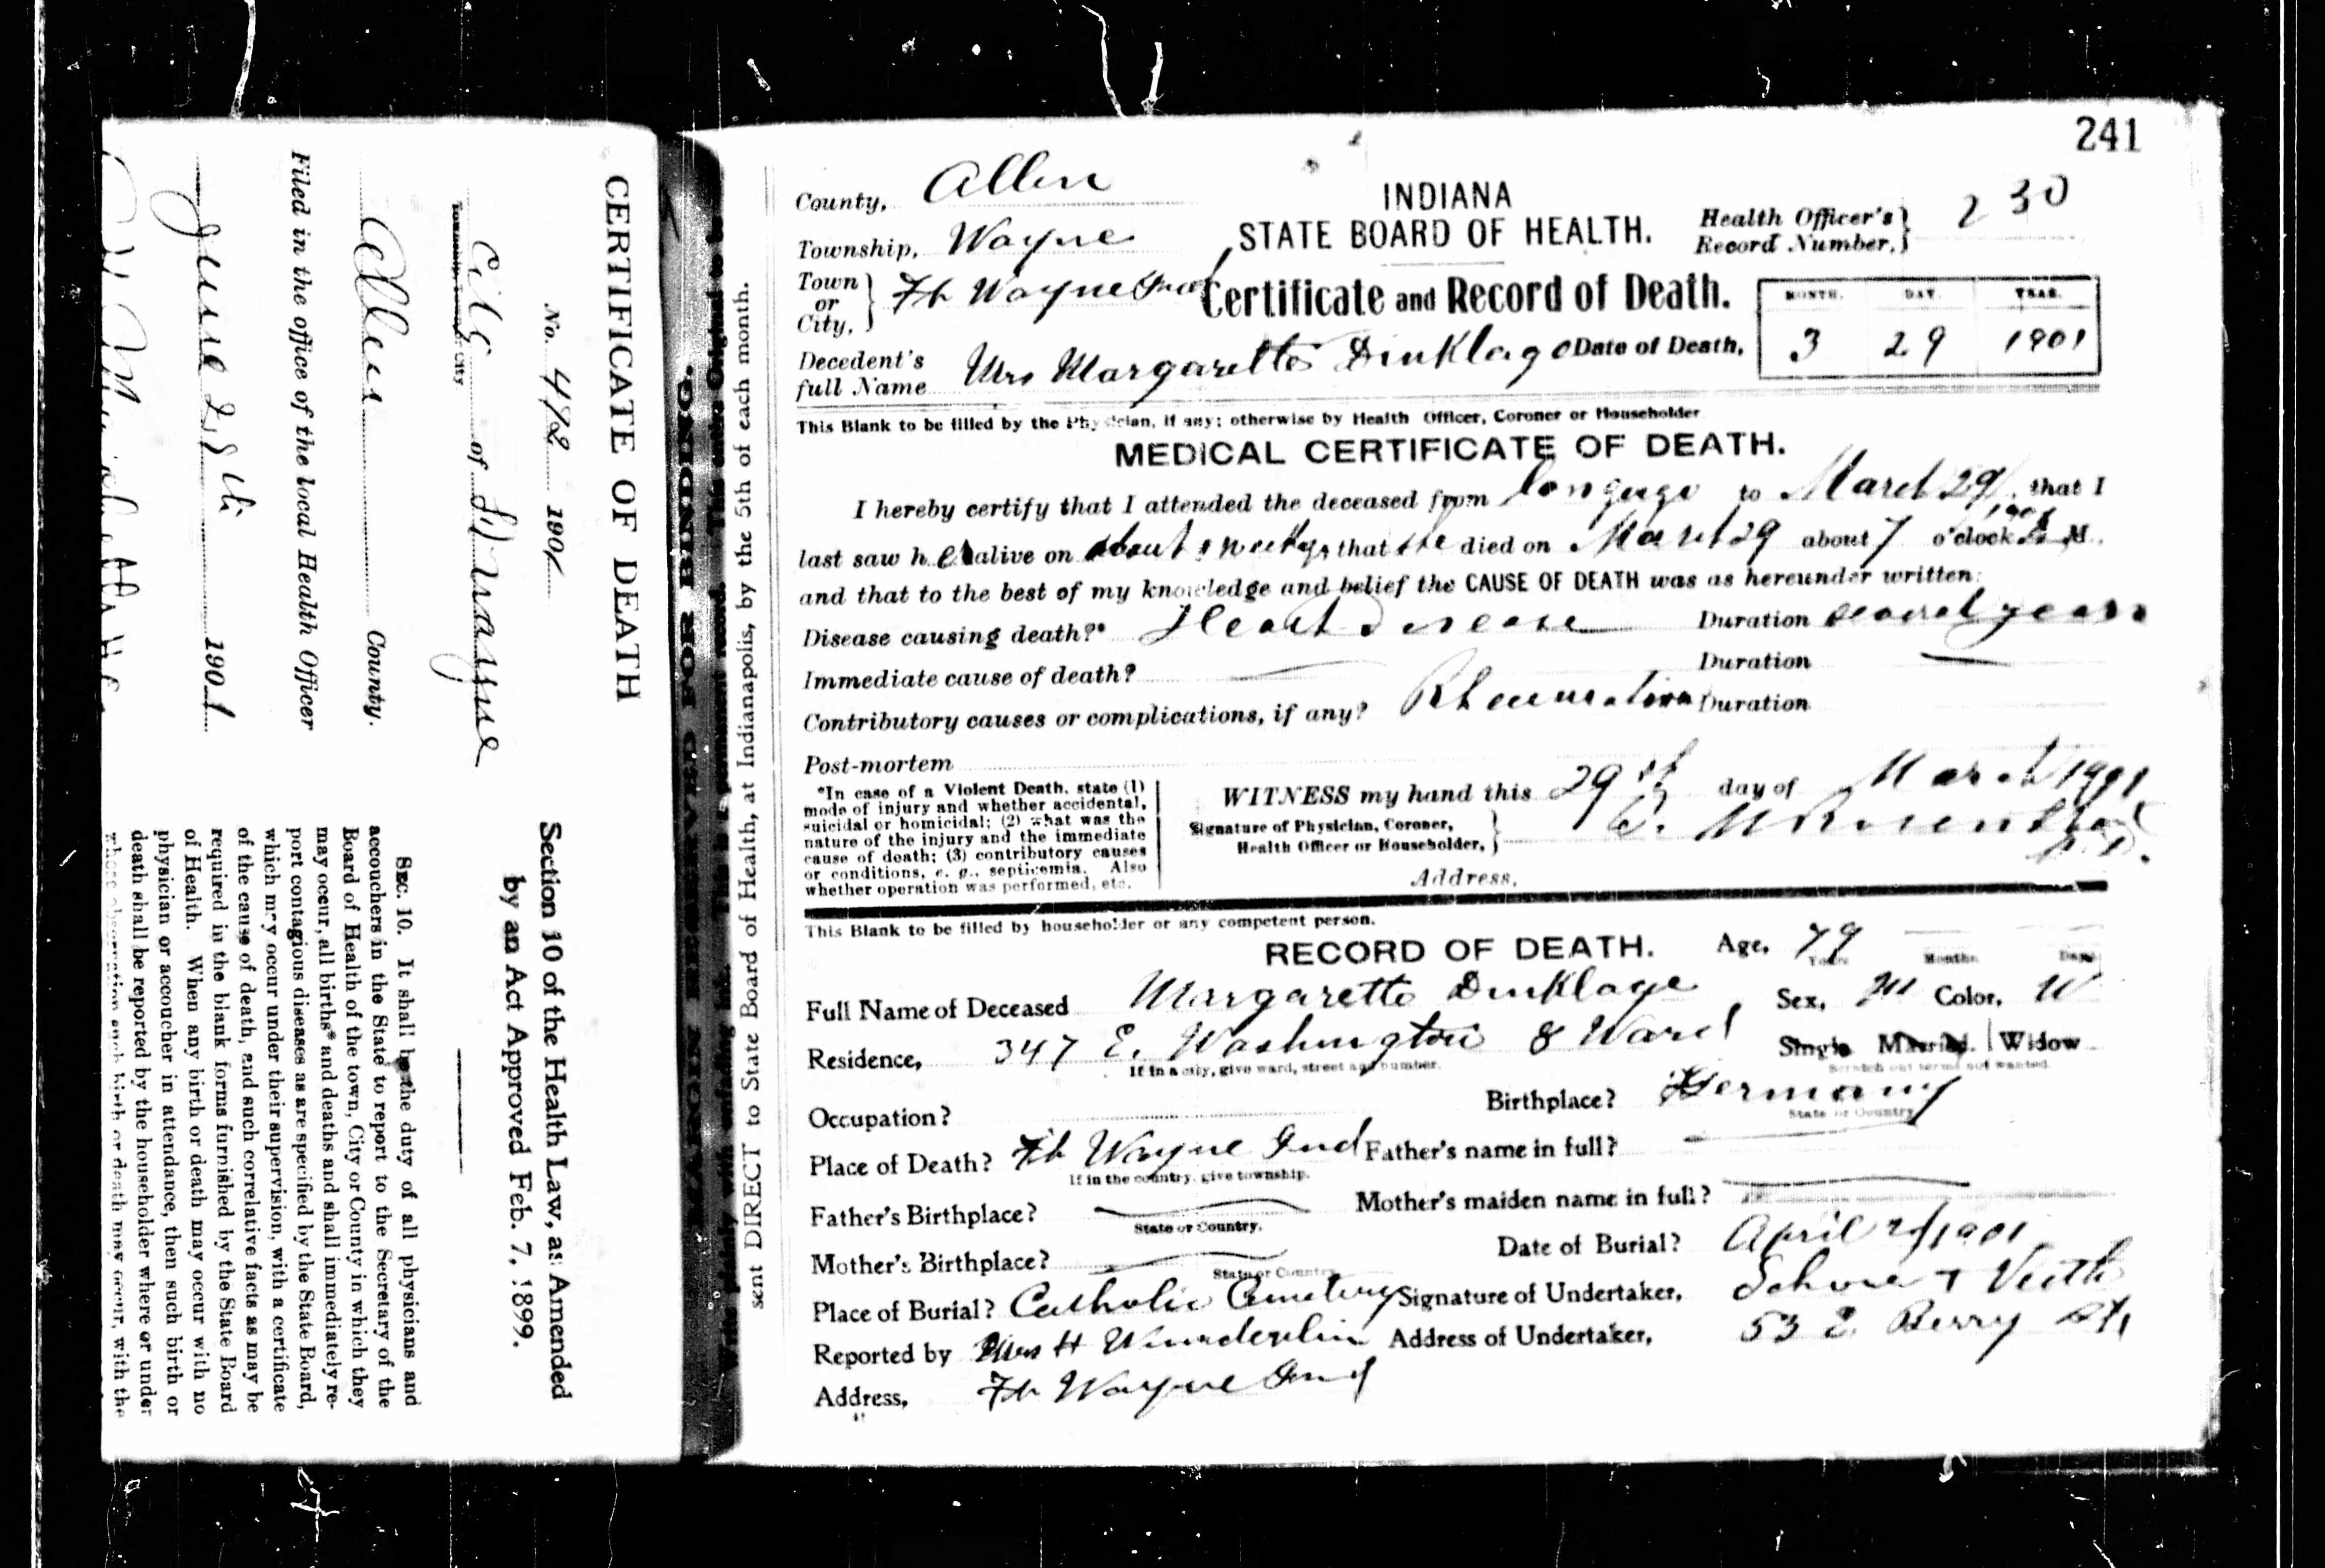 241
County, Allen
Township, Wayne
Town or City, Ft Wayne Ind
INDIANA
STATE BOARD OF HEALTH.
Certificate and Record of Death.
Health Officer's Record Number, 230
Decedent's full Name Mrs Margaretta Dinklage Date of Death,
MONTH. DAY. YEAR.
3 29 1901
This Blank to be filled by the Physician, if any; otherwise by Health Officer, Coroner or Householder
MEDICAL CERTIFICATE OF DEATH.
I hereby certify that I attended the deceased from long ago to March 29, 1901 that I
last saw her alive on about that she died on March 29 about 7 o'clock M.
and that to the best of my knowledge and belief the CAUSE OF DEATH was as hereunder written:
Disease causing death?* Heart Disease Duration several years
Immediate cause of death? — Duration —
Contributory causes or complications, if any? Rheumatism Duration
Post-mortem
*In case of a Violent Death, state (1)
mode of injury and whether accidental,
suicidal or homicidal; (2) what was the
nature of the injury and the immediate
cause of death; (3) contributory causes
or conditions, e. g., septicemia. Also
whether operation was performed, etc.
WITNESS my hand this 29th day of March 1901
Signature of Physician, Coroner,
Health Officer or Householder,
Address,
This Blank to be filled by householder or any competent person.
RECORD OF DEATH. Age, 79
Years Months Days
Full Name of Deceased Margaretta Dinklage Sex, Color, W
Residence, 347 E. Washington 8 Ward Single Married. Widow
If in a city, give ward, street and number. Scratch out terms not wanted.
Occupation? Birthplace? Germany
State or Country
Place of Death? Ft Wayne Ind Father's name in full? —
If in the country, give township.
Father's Birthplace? — Mother's maiden name in full? —
State or Country.
Mother's Birthplace? — Date of Burial? April 1901
State or Country
Place of Burial? Catholic Cemetery Signature of Undertaker, Schone & Veith
Reported by Mrs H Wunderlin Address of Undertaker, 53 E Berry St,
Address, Ft Wayne Ind
sent DIRECT to State Board of Health, at Indianapolis, by the 5th of each month.
CERTIFICATE OF DEATH
No. 472 1901
City of Ft Wayne
Township, Town or City
Allen County.
Filed in the office of the local Health Officer
June 28th 1901
Section 10 of the Health Law, as Amended
by an Act Approved Feb. 7, 1899.
SEC. 10. It shall be the duty of all physicians and
accouchers in the State to report to the Secretary of the
Board of Health of the town, City or County in which they
may occur, all births* and deaths and shall immediately re-
port contagious diseases as are specified by the State Board,
which may occur under their supervision, with a certificate
of the cause of death, and such correlative facts as may be
required in the blank forms furnished by the State Board
of Health. When any birth or death may occur with no
physician or accoucher in attendance, then such birth or
death shall be reported by the householder where or under
whose observation such birth or death may occur, with the